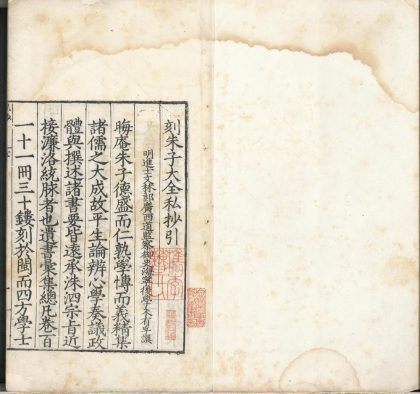 刻朱子大全私抄引
明進士文林郎廣西道監察御史海鹽後學
晦庵朱子德盛而仁熟學博而義精集
諸儒之大成故平生論辨心學奏議政
體與撰述諸書要皆遠承洙泗宗旨近
接濂洛統脉者也遺書彙集總凡卷一百
一十一冊三十鏤刻於閩而四方學士